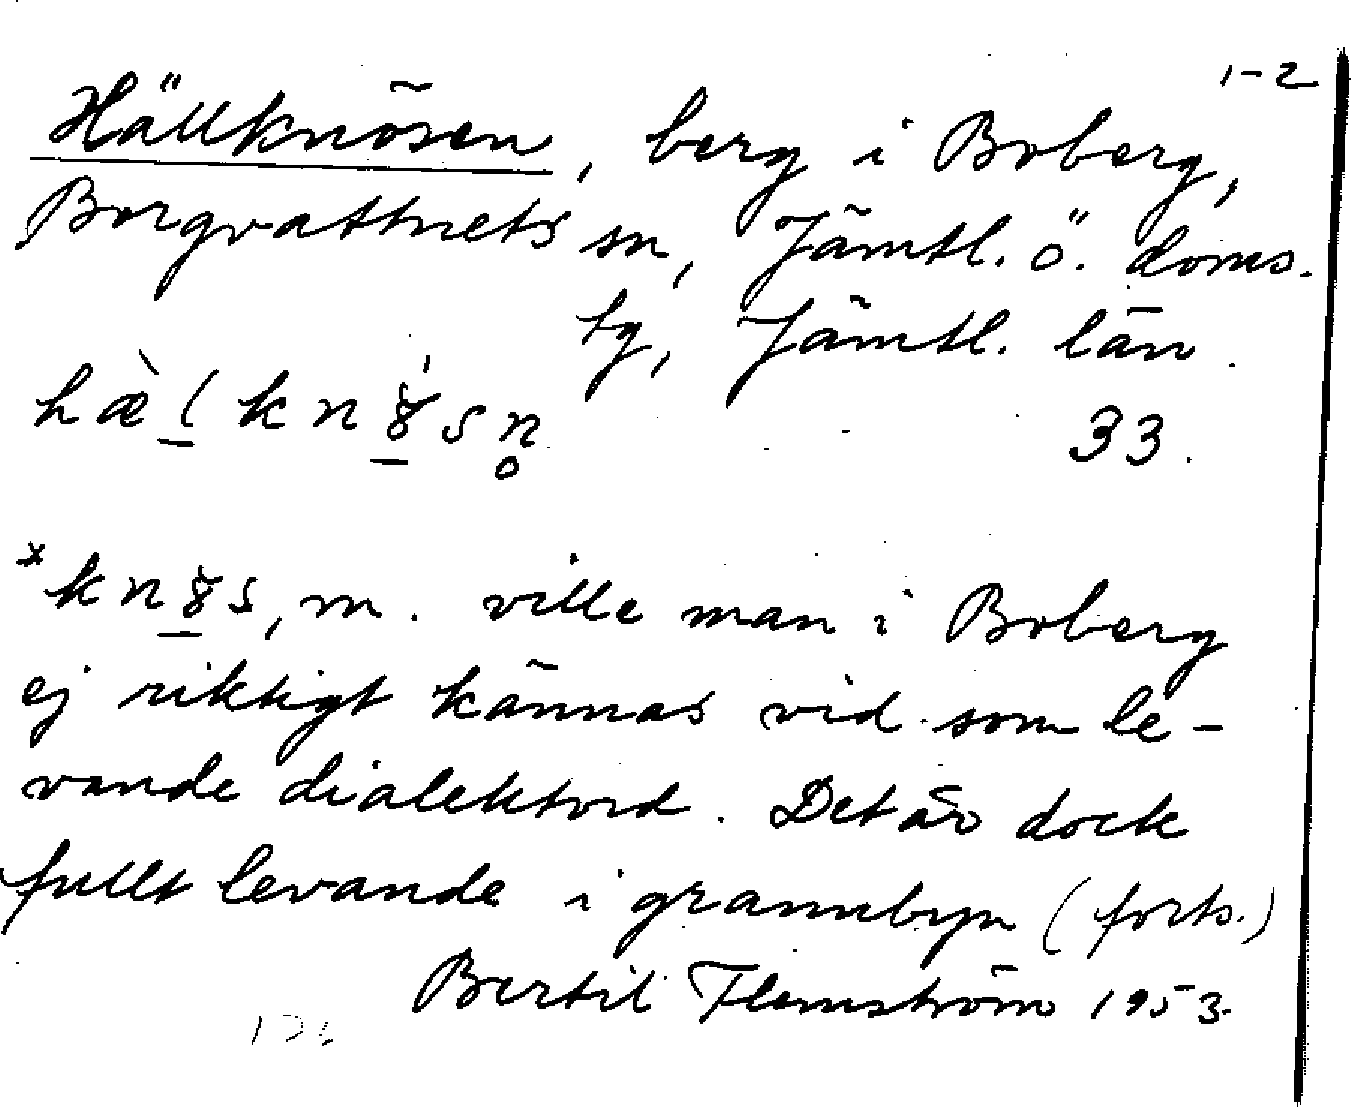 1-2
Hällknösen, berg i Boberg,
Borgvattnets sn, Jämtl. ö. doms.
tg, Jämtl. län.
33.
ville man i Boberg
ej riktigt kännas vid som le-
vande dialektord. Det är dock
fullt levande i grannbyn (forts.)
Bertil Flemström 1953.